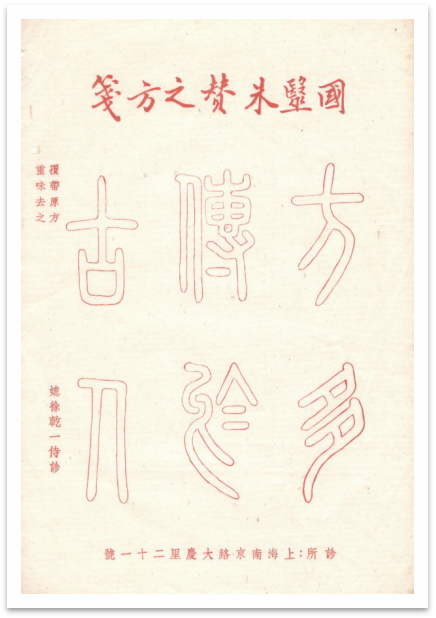 國毉朱賛之方箋
方多
傳於
古人
覆帶原方
重味去之
徐乾一侍診
診所:上海南京路大慶里二十一號